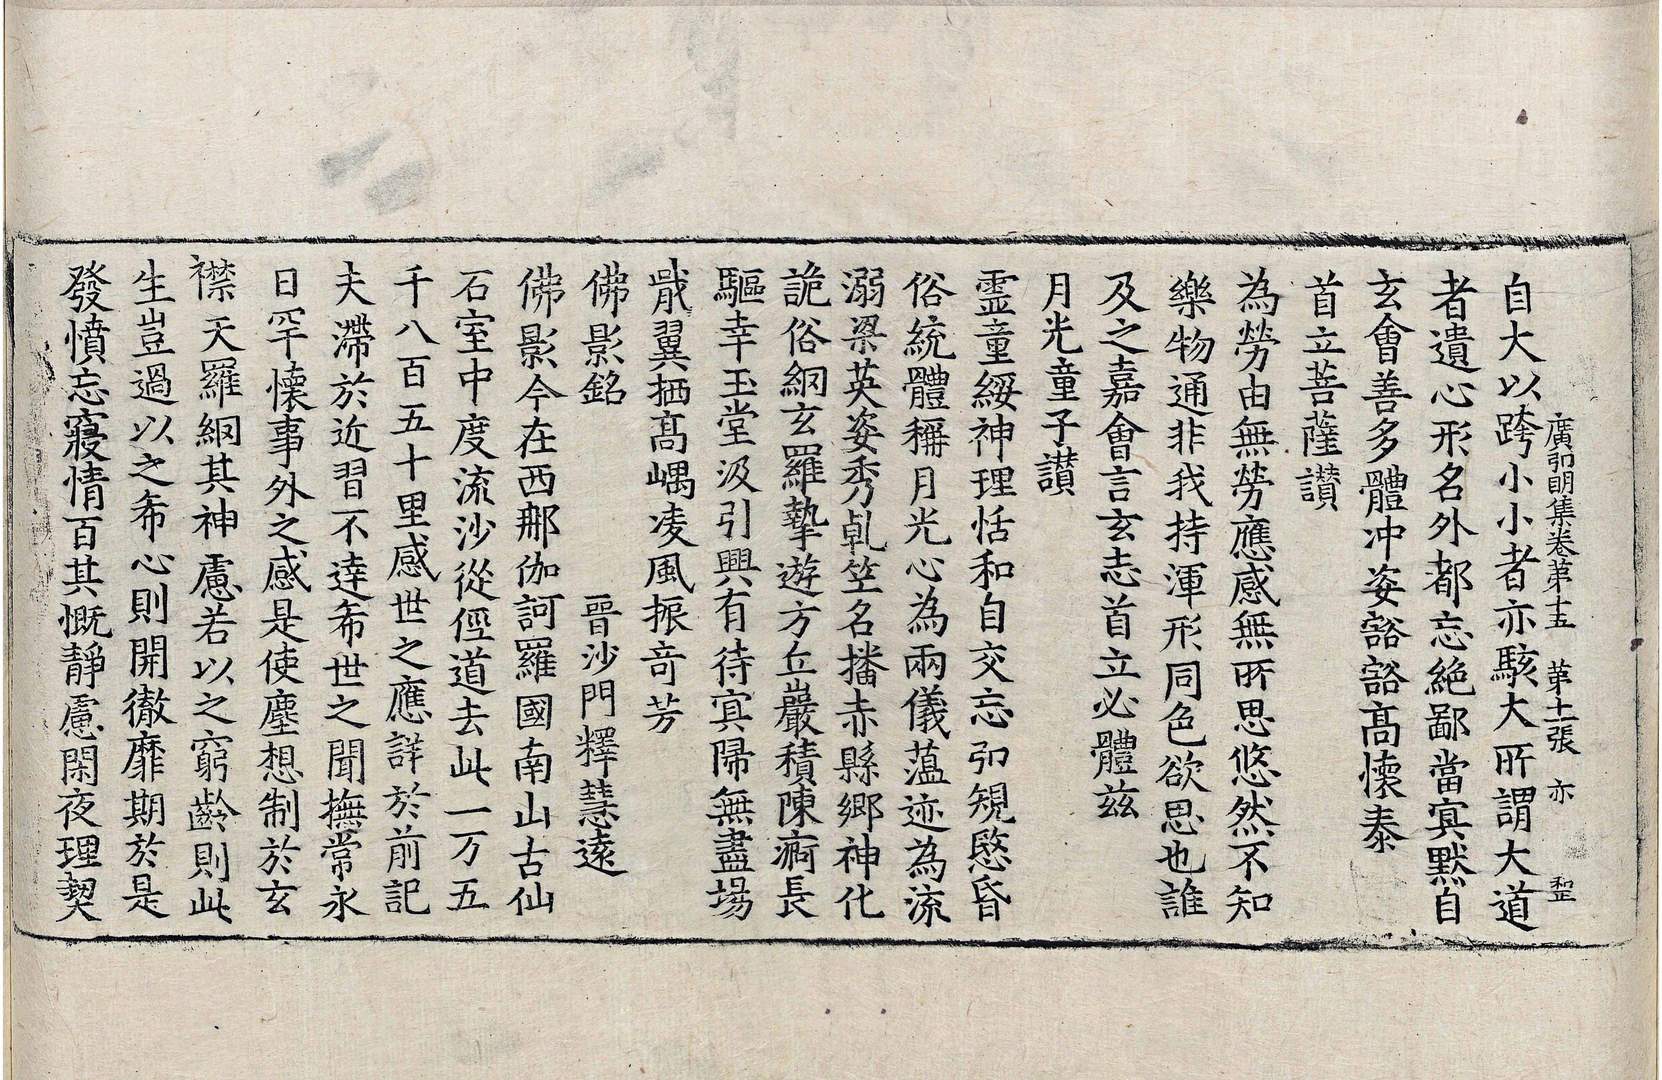 廣弘明集卷第十五　第十一張　亦
自大以跨小小者亦駭大所謂大道
者遺心形名外都忘絶鄙當冥黙自
玄會善多體冲姿豁豁髙懷泰
首立菩薩讃
為勞由無勞應感無所思悠然不知
樂物通非我持渾形同色欲思也誰
及之嘉會言玄志首立必體兹
月光童子讃
靈童綏神理恬和自交忘弘規愍昏
俗統體稱月光心為兩儀藴迹為流
溺梁英姿秀乹竺名播赤縣鄉神化
詭俗網玄羅摯遊方丘巖積陳痾長
驅幸玉堂汲引興有待冥歸無盡場
戢翼栖髙嵎凌風振竒芳
佛影銘　晉沙門釋慧遠
佛影今在西那伽訶羅國南山古仙
石室中度流沙從徑道去此一万五
千八百五十里感世之應詳於前記
夫滯於近習不達希世之聞撫常永
日罕懷事外之感是使塵想制於玄
襟天羅網其神慮若以之窮齡則此
生豈過以之希心則開徹靡期於是
發憤忘寢情百其慨靜慮閑夜理契